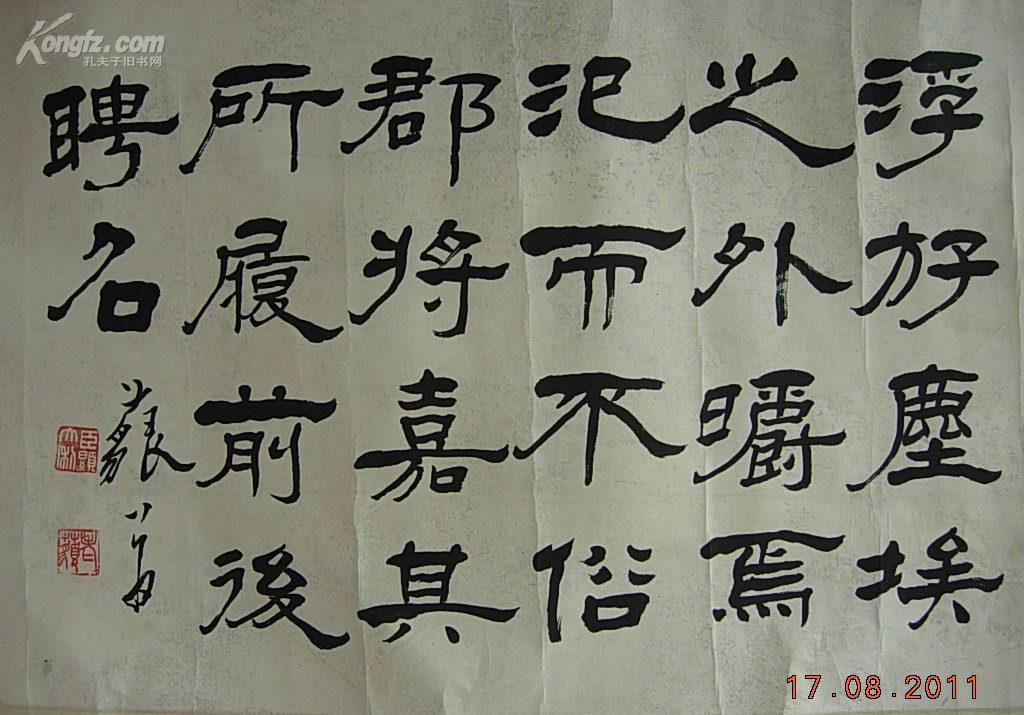 浮斿塵埃
之外皭焉
氾而不俗
郡將嘉其
所履前後
聘名
Kongfz.com
孔夫子旧书网
17.08.2011